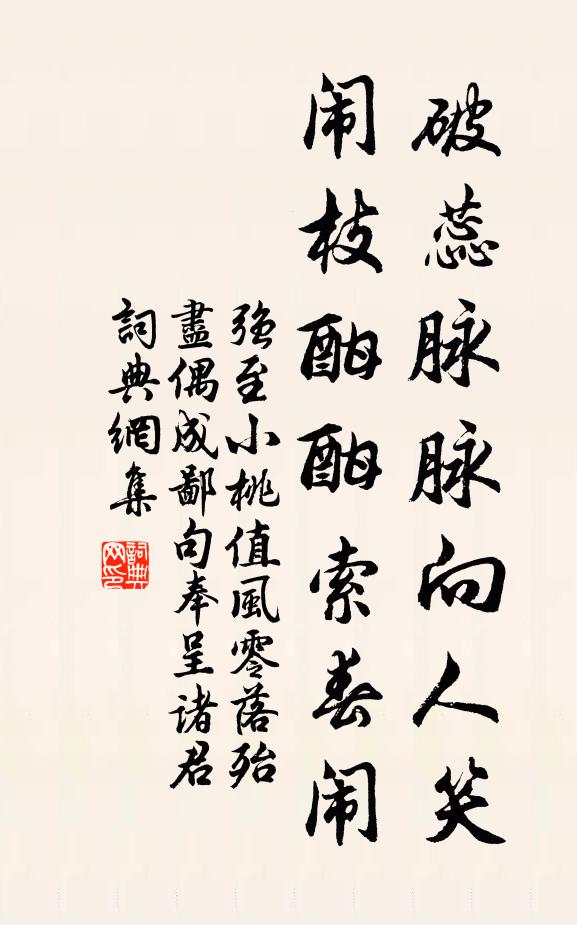 破蕊脉脉向人笑
闹枝酣酣索春闹
强至小桃值風零落殆
盡偶成鄙句奉呈诸君
詞典網集
詞典
网印